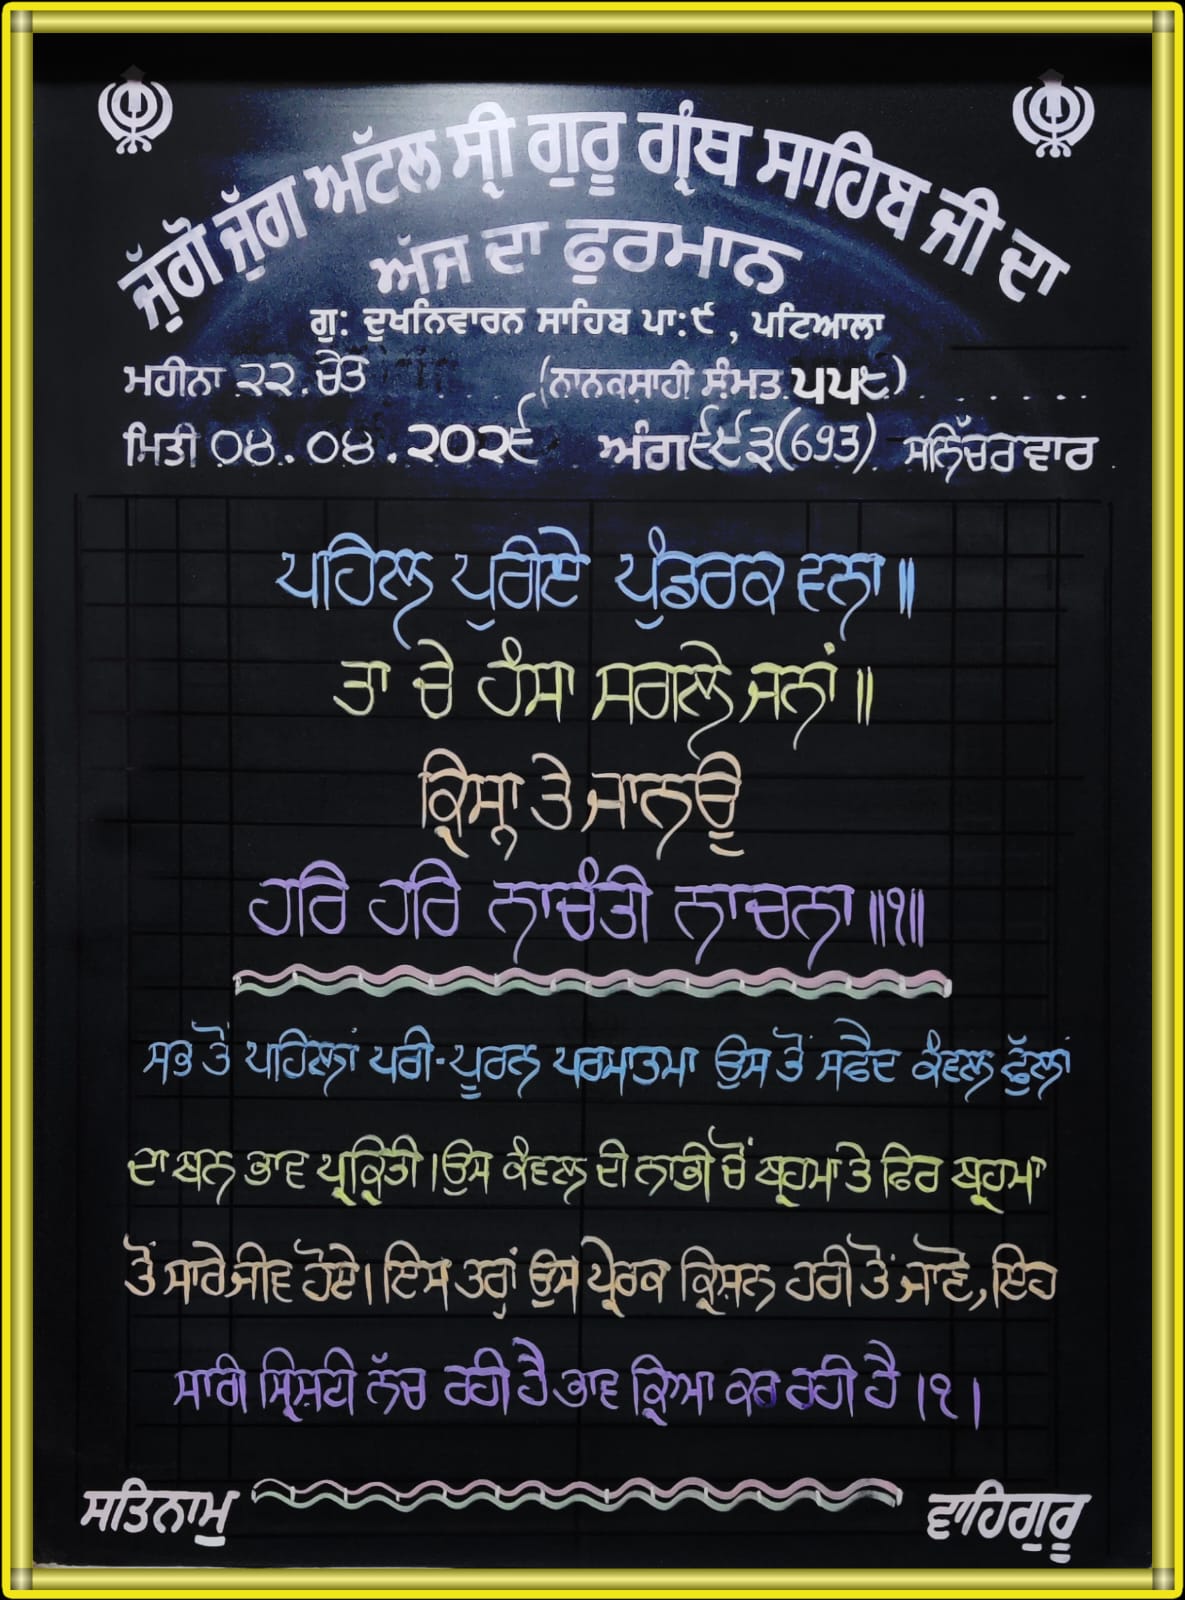 ਜੁੱਗੋ ਜੁੱਗ ਅਟੱਲ ਸ੍ਰੀ ਗੁਰੂ ਗ੍ਰੰਥ ਸਾਹਿਬ ਜੀ ਦਾ
ਅੱਜ ਦਾ ਫੁਰਮਾਨ
ਗੁ: ਦੁਖਨਿਵਾਰਨ ਸਾਹਿਬ ਪਾ:੯ , ਪਟਿਆਲਾ
ਮਹੀਨਾ ੨੨. ਚੇਤ (ਨਾਨਕਸ਼ਾਹੀ ਸੰਮਤ ੫੫੮)
ਮਿਤੀ ੦੪.੦੪.੨੦੨੬ ਅੰਗ ੬੯੩(693) ਸਨਿੱਚਰਵਾਰ
ਪਹਿਲ ਪੁਰੀਏ ਪੁੰਡਰਕ ਵਨਾ ॥
ਤਾ ਚੇ ਹੰਸਾ ਸਗਲੇ ਜਨਾਂ ॥
ਕ੍ਰਿਸ੍ਨਾ ਤੇ ਜਾਨਊ
ਹਰਿ ਹਰਿ ਨਾਚੰਤੀ ਨਾਚਨਾ ॥੧॥
ਸਭ ਤੋਂ ਪਹਿਲਾਂ ਪਰੀ-ਪੂਰਨ ਪਰਮਾਤਮਾ ਉਸ ਤੋਂ ਸਫੈਦ ਕੰਵਲ ਫੁੱਲਾਂ
ਦਾ ਬਨ ਭਾਵ ਪ੍ਰਕ੍ਰਿਤੀ । ਉਸ ਕੰਵਲ ਦੀ ਨਾਭੀ ਚੋਂ ਬ੍ਰਹਮਾ ਤੇ ਫਿਰ ਬ੍ਰਹਮਾ
ਤੋਂ ਸਾਰੇ ਜੀਵ ਹੋਏ । ਇਸ ਤਰ੍ਹਾਂ ਉਸ ਪ੍ਰੇਰਕ ਕ੍ਰਿਸ਼ਨ ਹਰੀ ਤੋਂ ਜਾਣੋ, ਇਹ
ਸਾਰੀ ਸ੍ਰਿਸ਼ਟੀ ਨੱਚ ਰਹੀ ਹੈ ਭਾਵ ਕ੍ਰਿਆ ਕਰ ਰਹੀ ਹੈ ।੧।
ਸਤਿਨਾਮੁ ਵਾਹਿਗੁਰੂ